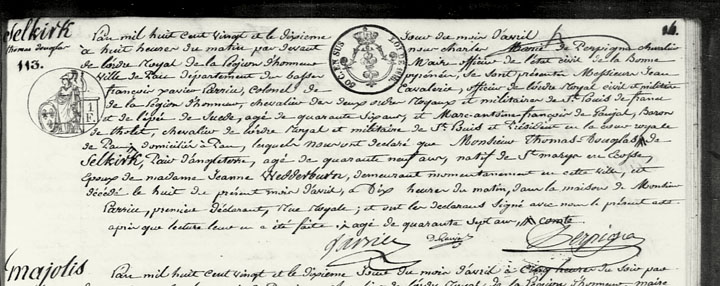 Selkirk
Thomas Douglas
113.
14.
L'an mil huit cent vingt et le dixieme Jour du mois d'avril
à huit heures du matin par devant nous charles de Perpigna chevalier
de l'ordre Royal de la Légion d'honneur Maire officier de l'état civil de la Bonne
Ville de Pau Département des basses pyrénées, se sont présentés Messieurs Jean
françois xavier Parrier, Colonel de Cavalerie, officier de l'ordre Royal civil et militaire
de la Légion d'honneur, chevalier des deux ordres Royaux et militaires de St Louis de france
et de l'épée de Suede, agé de quarante Six ans, et Marc-antoine-françois de Gaujal, Baron
de Tholet, chevalier de l'ordre Royal et militaire de St Louis et Président en la cour royale
de Pau, domiciliés à Pau, lesquels nous ont déclaré que Monsieur Thomas-Douglas de
Selkirk, Pair d'angleterre, agé de quarante neuf ans, natif de St marys en Ecosse,
Epoux de madame Jeanne Wedderburn, demeurant momentanement en cette Ville, est
décédé le huit du présent mois d'avril, à Dix heures du matin, dans la maison de Monsieur
Parrier, premier déclarant, Rue Royale; et ont les déclarans Signé avec nous le présent acte
après que lecture leur en a été faite. agé de quarante Sept ans, comte
Parrier
Perpigna
majolis
L'an mil huit cent vingt et le dixieme Jour du mois d'avril à Cinq heures du Soir par